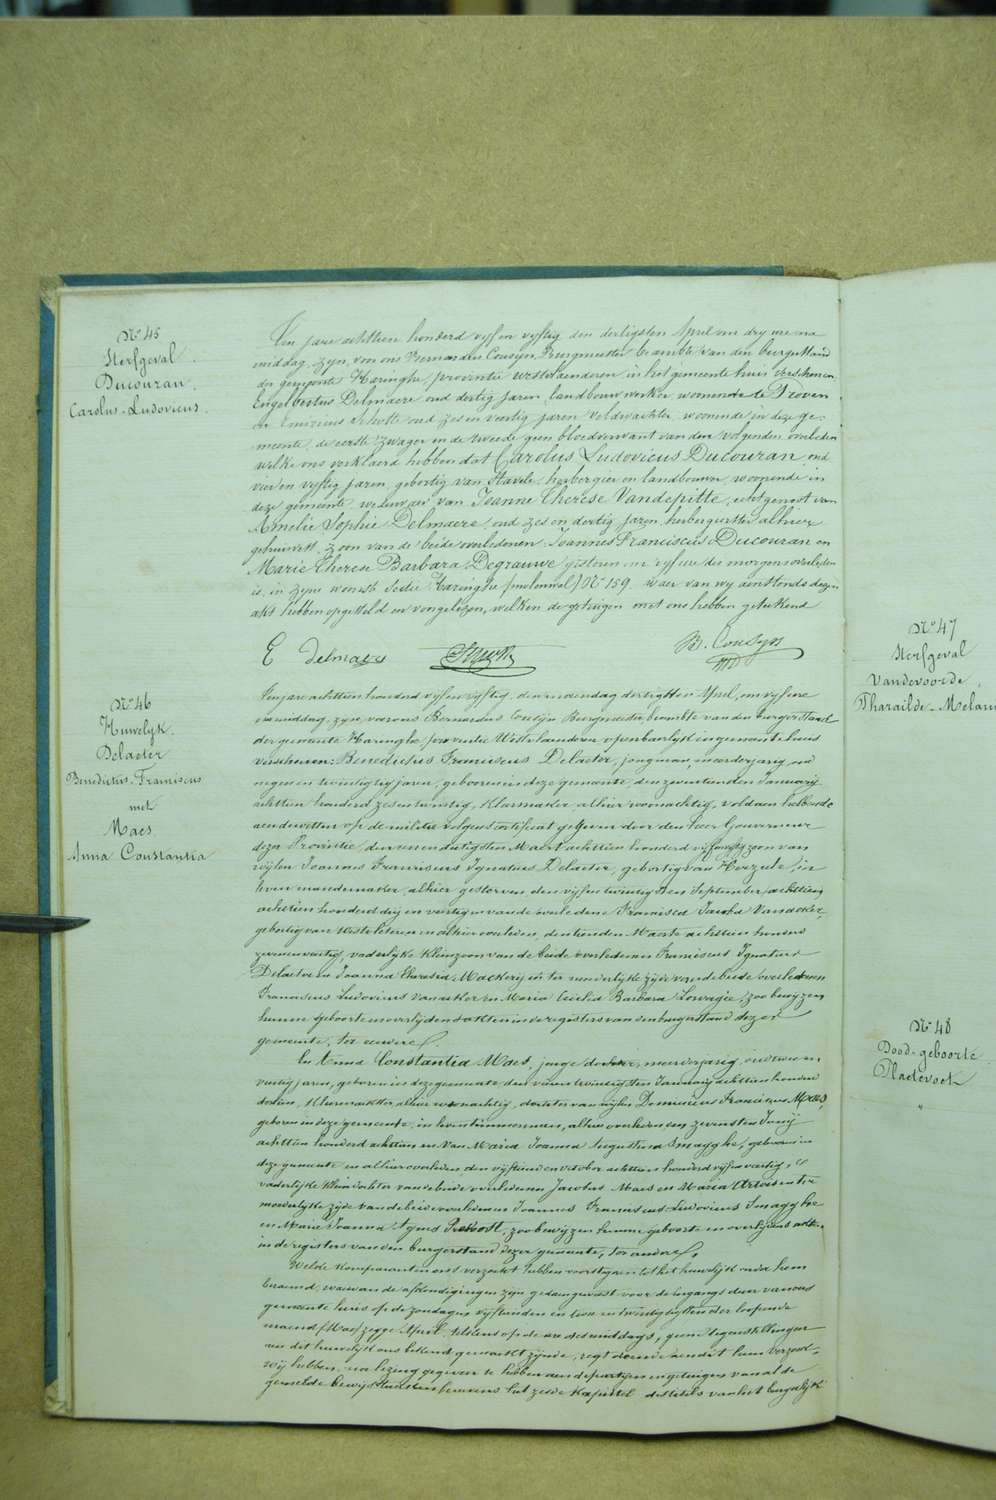 N.º 45
Sterfgeval
Ducouran,
Carolus-Ludovicus.
Ten jare achttien honderd vyf en vyftig den dertigsten April om dry ure na
middag, zyn, voor ons Bernardus Cousyn, Burgmeester, beambte van den burgerstand
der gemeente Haringhe, provintie Westvlaenderen, in het gemeente huis verschenen
Engelbertus Delmaere oud dertig jaren landbouw werker woonende te Proven
en oud zes en veertig jaren veldwachter, woonende in deze ge-
meente, de eerste zwager en de tweede geen bloedverwant van den volgenden overleden
welke ons verklaerd hebben dat Carolus Ludovicus Ducouran, oud
vier en vyftig jaren, geboortig van Stavele, herbergier en landbouwer, woonende in
deze gemeente, weduwaer van Joanne Therese Vandepitte, echtgenoot van
Amelie Sophie Delmaere, oud zes en dertig jaren, herbergierster alhier
gehuisvest, zoon van de beide overledenen Joannes Franciscus Ducouran en
Marie Therese Barbara Degrauwe, gisteren om vyf ure des morgens overleden
is, in zyne woonst Sectie Haringhe N.º 159. Waer van wy aenstonds dezen
akt hebben opgesteld en voorgelezen, welken de getuigen met ons hebben geteekend
E Delmaere
B. Cousyn
N.º 46
Huwelyk
Delaeter
Benedictus-Franciscus
met
Maes
Anna Constantia
Ten jare achttien honderd vyf en vyftig, den maendag dertigsten April, om vyf ure
namiddag, zyn, voor ons Bernardus Cousyn Burgmeester, beambte van den burgerstand
der gemeente Haringhe, provintie Westvlaenderen, openbaerlyk in gemeentehuis
verschenen: Benedictus Franciscus Delaeter, jongman meerderjarig, oud
negen en twintig jaren, geboren in deze gemeente, den January
achttien honderd zes en twintig, alhier woonachtig, voldaen hebbende
aen de wetten op de militie volgens certificaet gegeven door den heer Gouverneur
dezer Provintie, den een en dertigsten Maert achttien honderd vyf en vyftig, zoon van
wylen Joannes Franciscus Ignatius Delaeter, geboortig van Herzeele, in
leven mandemaker, alhier gestorven den vyf en twintigsten September achttien
achttien honderd dry en veertig en van de overledene Francisca Jacoba Vanacker,
geboortig van Westvleteren en alhier overleden, den tienden Maerte achttien honderd
zeven en veertig, vaderlyke kleinzoon van de beide overledenen Franciscus Ignatius
Delaeter en Joanna Theresia Mackery en ter moederlyke zyde van de beide overledenen
Franciscus Ludovicus Vanacker en Maria Cecilia Barbara Lowagie, zoo bewyzen
hunne geboorte en overlydens akten in de registers van den burgerstand dezer
gemeente, ten andere.
En Anna Constantia Maes, jonge dochter, meerderjarig, oud twee en
veertig jaren, geboren in deze gemeente, den January achttien honderd
dertien, alhier woonachtig, dochter van wylen Dominicus Franciscus Maes,
geboren in deze gemeente, in leven timmerman, alhier overleden den Juny
achttien honderd achttien en van Maria Joanna Augustina Smagghe, geboren in
deze gemeente en alhier overleden den October achttien honderd vyf en veertig,
vaderlyke klein dochter van de beide overledenen Jacobus Maes en Maria en ter
moederlyke zyde van de beide overledenen Joannes Franciscus Ludovicus Smagghe
en Marie Joanna Agnes Prevost, zoo bewyzen hunne geboorte en overlydens akten
in de registers van den burgerstand dezer gemeente, ten andere.
Welke komparanten ons verzocht hebben voorttegaen tot het huwelyk onder hen
beraemd, waervan de afkondigingen zyn gedaen geweest voor de ingangs deur van ons
gemeente huis op de zondagen vyftienden en twee en twintigsten der loopende
maend zegge April, telkens op de ure des middags, geene tegenstellingen
van dit huwelyk ons bekend gemaekt zynde, regt doende aen dit hun verzoek,
wy hebben, na lezing gegeven te hebben aen de partyen en getuigen van al de
gemelde bewysstukken benevens het zesde kapittel des titels van het burgerlyk
N.º 47
Sterfgeval
Vandevoorde,
Tharailde-Melani
N.º 48
Dood-geboorte
Plaetevoet
"